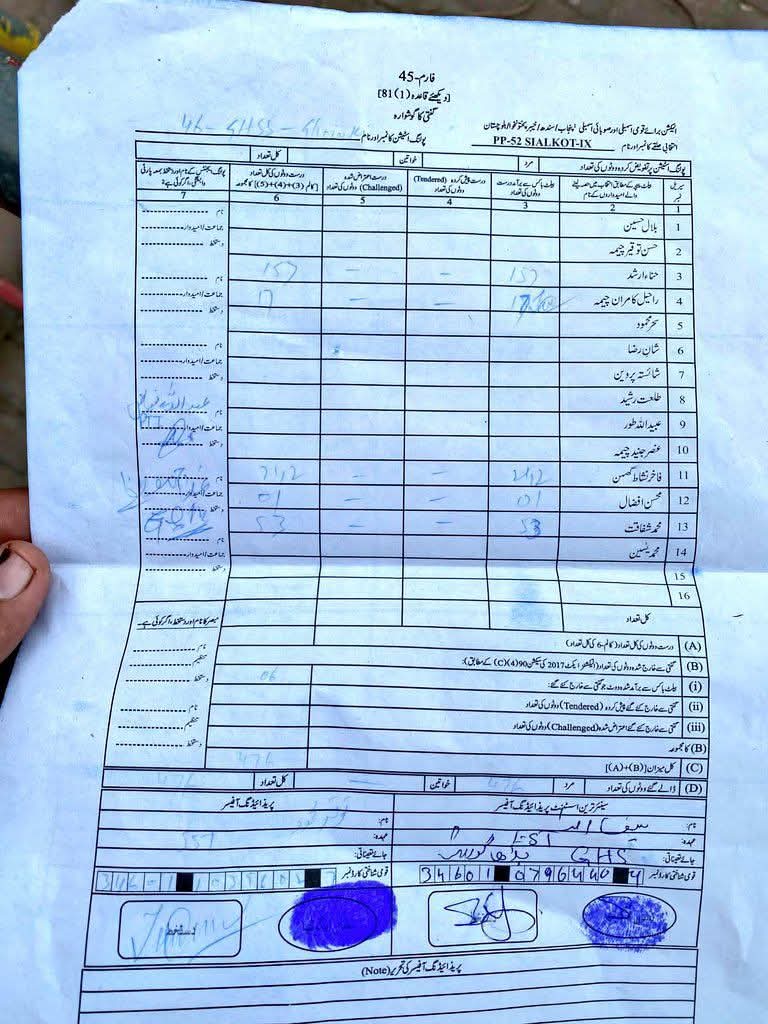 فارم-45
[دیکھئے قاعدہ (1)81]
گنتی کا گوشوارہ
الیکشن برائے قومی اسمبلی اور صوبائی اسمبلی پنجاب/سندھ/خیبر پختونخوا/بلوچستان
انتخابی حلقے کا نمبر اور نام PP-52 SIALKOT-IX پولنگ اسٹیشن کا نمبر اور نام 46-GHSS-
پولنگ اسٹیشن پر تفویض کردہ ووٹوں کی تعداد مرد خواتین کل تعداد
سیریل نمبر
بیلٹ پیپر کے مطابق انتخاب میں حصہ لینے والے امیدواروں کے نام
بیلٹ باکس سے برآمد درست ووٹوں کی تعداد
درست پیش کردہ (Tendered) ووٹوں کی تعداد
درست اعتراض شدہ (Challenged) ووٹوں کی تعداد
درست ووٹوں کی کل تعداد [کالم (3)+(4)+(5) کا مجموعہ]
پولنگ ایجنٹس کے نام اور دستخط بمعہ پارٹی وابستگی، اگر کوئی ہے؟
1 2 3 4 5 6 7
1 بلال حسین
2 حسن توقیر چیمہ
3 حناء ارشد 157 – – 157
4 راحیل کامران چیمہ 17 – – 17
5 سحر محمود
6 شان رضا
7 شائستہ پروین
8 طلعت رشید
9 عبید اللہ طور
10 عنصر جنید چیمہ
11 فاخر نشاط گھمن 242 – – 242
12 محسن افضال 01 – – 01
13 محمد شفاقت 53 – – 53
14 محمد یٰسین
15
16
نام
جماعت/امیدوار
دستخط
نام
جماعت/امیدوار
دستخط
نام
جماعت/امیدوار
دستخط
جماعت/امیدوار
دستخط
نام
جماعت/امیدوار
نام
جماعت/امیدوار
دستخط
کل تعداد
مبصر کا نام اور دستخط، اگر کوئی ہے۔
(A) درست ووٹوں کی کل تعداد (کالم-6 کی کل تعداد)
(B) گنتی سے خارج شدہ ووٹوں کی تعداد (الیکشنز ایکٹ 2017 کی سیکشن 90(4)(C) کے مطابق):
(i) بیلٹ باکس سے برآمد شدہ ووٹ جو گنتی سے خارج کئے گئے: 06
(ii) گنتی سے خارج کئے گئے پیش کردہ (Tendered) ووٹوں کی تعداد
(iii) گنتی سے خارج کئے گئے اعتراض شدہ (Challenged) ووٹوں کی تعداد
(B) کا مجموعہ
(C) کل میزان [(A)+(B)] 476
نام
تنظیم
دستخط
نام
تنظیم
دستخط
(D) ڈالے گئے ووٹوں کی تعداد مرد 476 خواتین – کل تعداد 476
سینئر ترین اسسٹنٹ پریذائیڈنگ آفیسر
نام:
عہدہ: EST
جائے تعیناتی: GHS
قومی شناختی کارڈ نمبر 34601 0796440 4
پریذائیڈنگ آفیسر
نام:
عہدہ:
جائے تعیناتی:
قومی شناختی کارڈ نمبر
دستخط
پریذائیڈنگ آفیسر کی تحریر (Note)